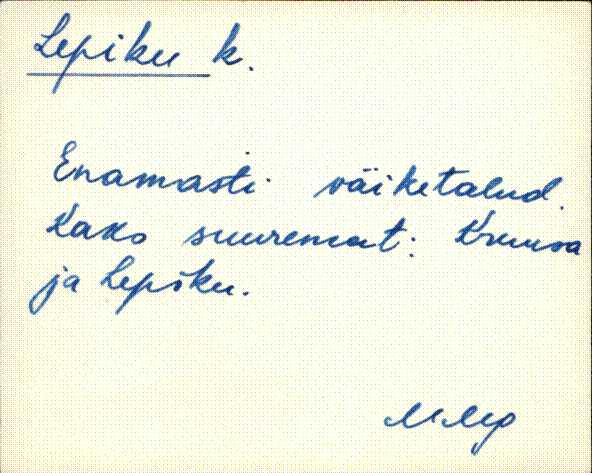 Lepiku k.
Enamasti väiketalud.
Kaks suuremat: Kruusa
ja Lepiku.